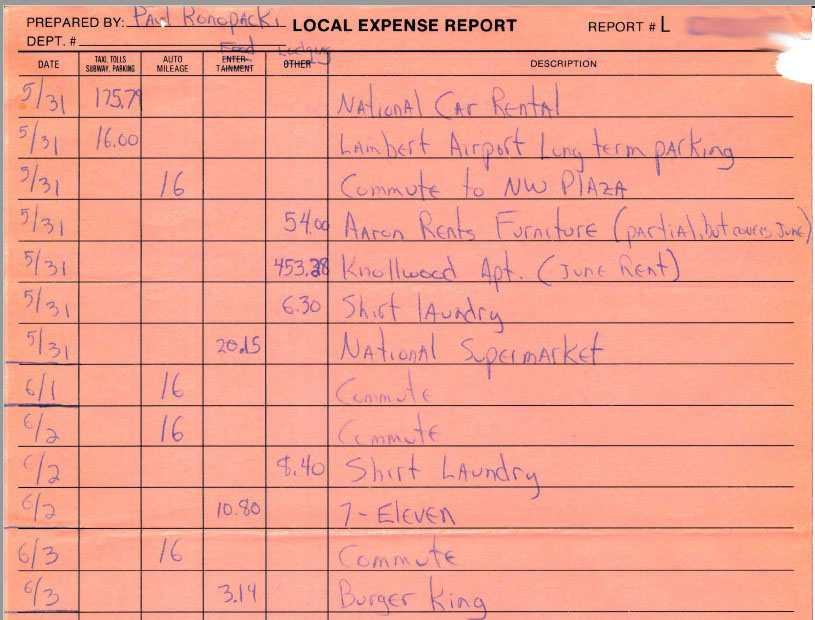 PREPARED BY: Paul Konopacki LOCAL EXPENSE REPORT REPORT # L
DEPT. # Food Lodging
DATE TAXI, TOLLS SUBWAY, PARKING AUTO MILEAGE ENTER-TAINMENT OTHER DESCRIPTION
5/31 175.79 National Car Rental
5/31 16.00 Lambert Airport Long term parking
5/31 16 Commute to NW Plaza
5/31 54.00 Aaron Rents Furniture (partial, but covers June)
5/31 453.28 Knollwood Apt. (June Rent)
5/31 6.30 Shirt laundry
5/31 20.15 National Supermarket
6/1 16 Commute
6/2 16 Commute
6/2 8.40 Shirt Laundry
6/2 10.80 7-Eleven
6/3 16 Commute
6/3 3.14 Burger King